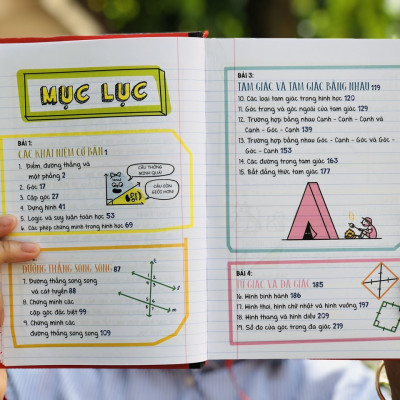 MỤC LỤC
BÀI 1:
CÁC KHÁI NIỆM CƠ BẢN 1
1. Điểm, đường thẳng và
mặt phẳng 2
2. Góc 17
3. Cặp góc 27
4. Dựng hình 41
5. Logic và suy luận toán học 53
6. Các phép chứng minh trong hình học 69
CẬU THÔNG
MINH QUÁ!
CẬU CÒN
GIỎI HƠN!
ĐƯỜNG THẲNG SONG SONG 87
7. Đường thẳng song song
và cát tuyến 88
8. Chứng minh các
cặp góc đặc biệt 99
9. Chứng minh các
đường thẳng song song 109
BÀI 3:
TAM GIÁC VÀ TAM GIÁC BẰNG NHAU 119
10. Các loại tam giác trong hình học 120
11. Góc trong và góc ngoài của tam giác 129
12. Trường hợp bằng nhau Cạnh - Cạnh - Cạnh và
Cạnh - Góc - Cạnh 139
13. Trường hợp bằng nhau Góc - Cạnh - Góc và Góc -
Góc - Cạnh 153
14. Các đường trong tam giác 163
15. Bất đẳng thức tam giác 177
BÀI 4:
TỨ GIÁC VÀ ĐA GIÁC 185
16. Hình bình hành 186
17. Hình thoi, hình chữ nhật và hình vuông 197
18. Hình thang và hình diều 209
19. Số đo của góc trong đa giác 219